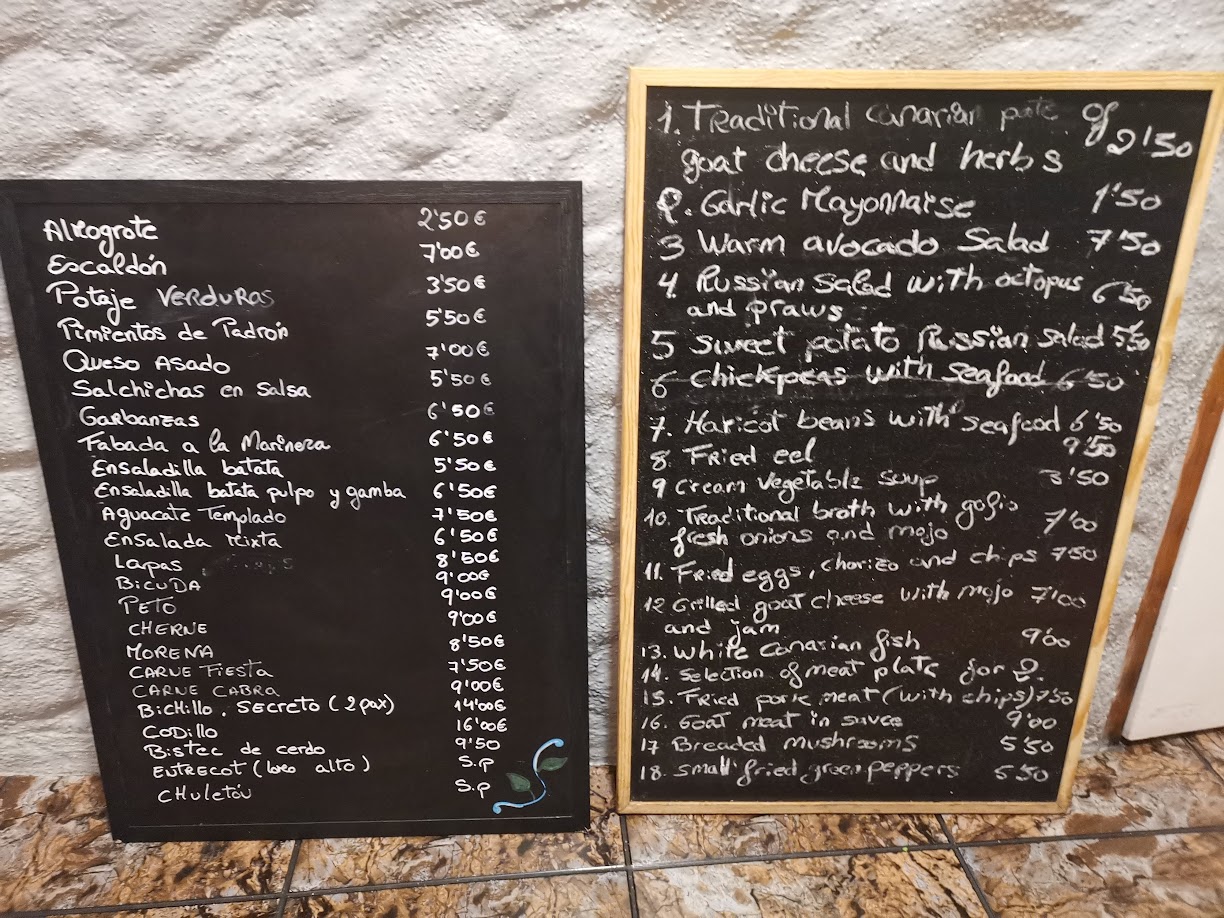 Almogrote 2'50€
Escaldón 7'00€
Potaje VERDURAS 3'50€
Pimientos de Padrón 5'50€
Queso Asado 7'00€
Salchichas en salsa 5'50€
Garbanzas 6'50€
Fabada a la Marinera 6'50€
Ensaladilla batata 5'50€
Ensaladilla batata pulpo y gamba 6'50€
Aguacate Templado 7'50€
Ensalada Mixta 6'50€
Lapas 8'50€
BICUDA 9'00€
PETO 9'00€
CHERNE 9'00€
MORENA 8'50€
CARNE FIESTA 7'50€
CARNE CABRA 9'00€
BICHillo, SECRETO (2 pax) 14'00€
CODillo 16'00€
Bistec de cerdo 9'50
ENTRECOT (lomo alto) S.p
CHuletón S.p
1. Traditional canarian pate of
goat cheese and herbs 2'50
2. Garlic Mayonnaise 1'50
3 Warm avocado Salad 7'50
4. Russian Salad with octopus
and praws 6'50
5 Sweet potato Russian Salad 5'50
6 Chickpeas with seafood 6'50
7. Haricot beans with seafood 6'50
8. Fried eel 9'50
9 Cream vegetable soup 3'50
10. Traditional broth with gofio
fresh onions and mojo 7'00
11. Fried eggs, chorizo and chips 7'50
12 Grilled goat cheese with mojo 7'00
and jam
13. White Canarian fish 9'00
14. Selection of meat plate for 2.
15. Fried pork meat (with chips) 7'50
16. Goat meat in sauce 9'00
17 Breaded mushrooms 5'50
18. Small fried green peppers 5'50